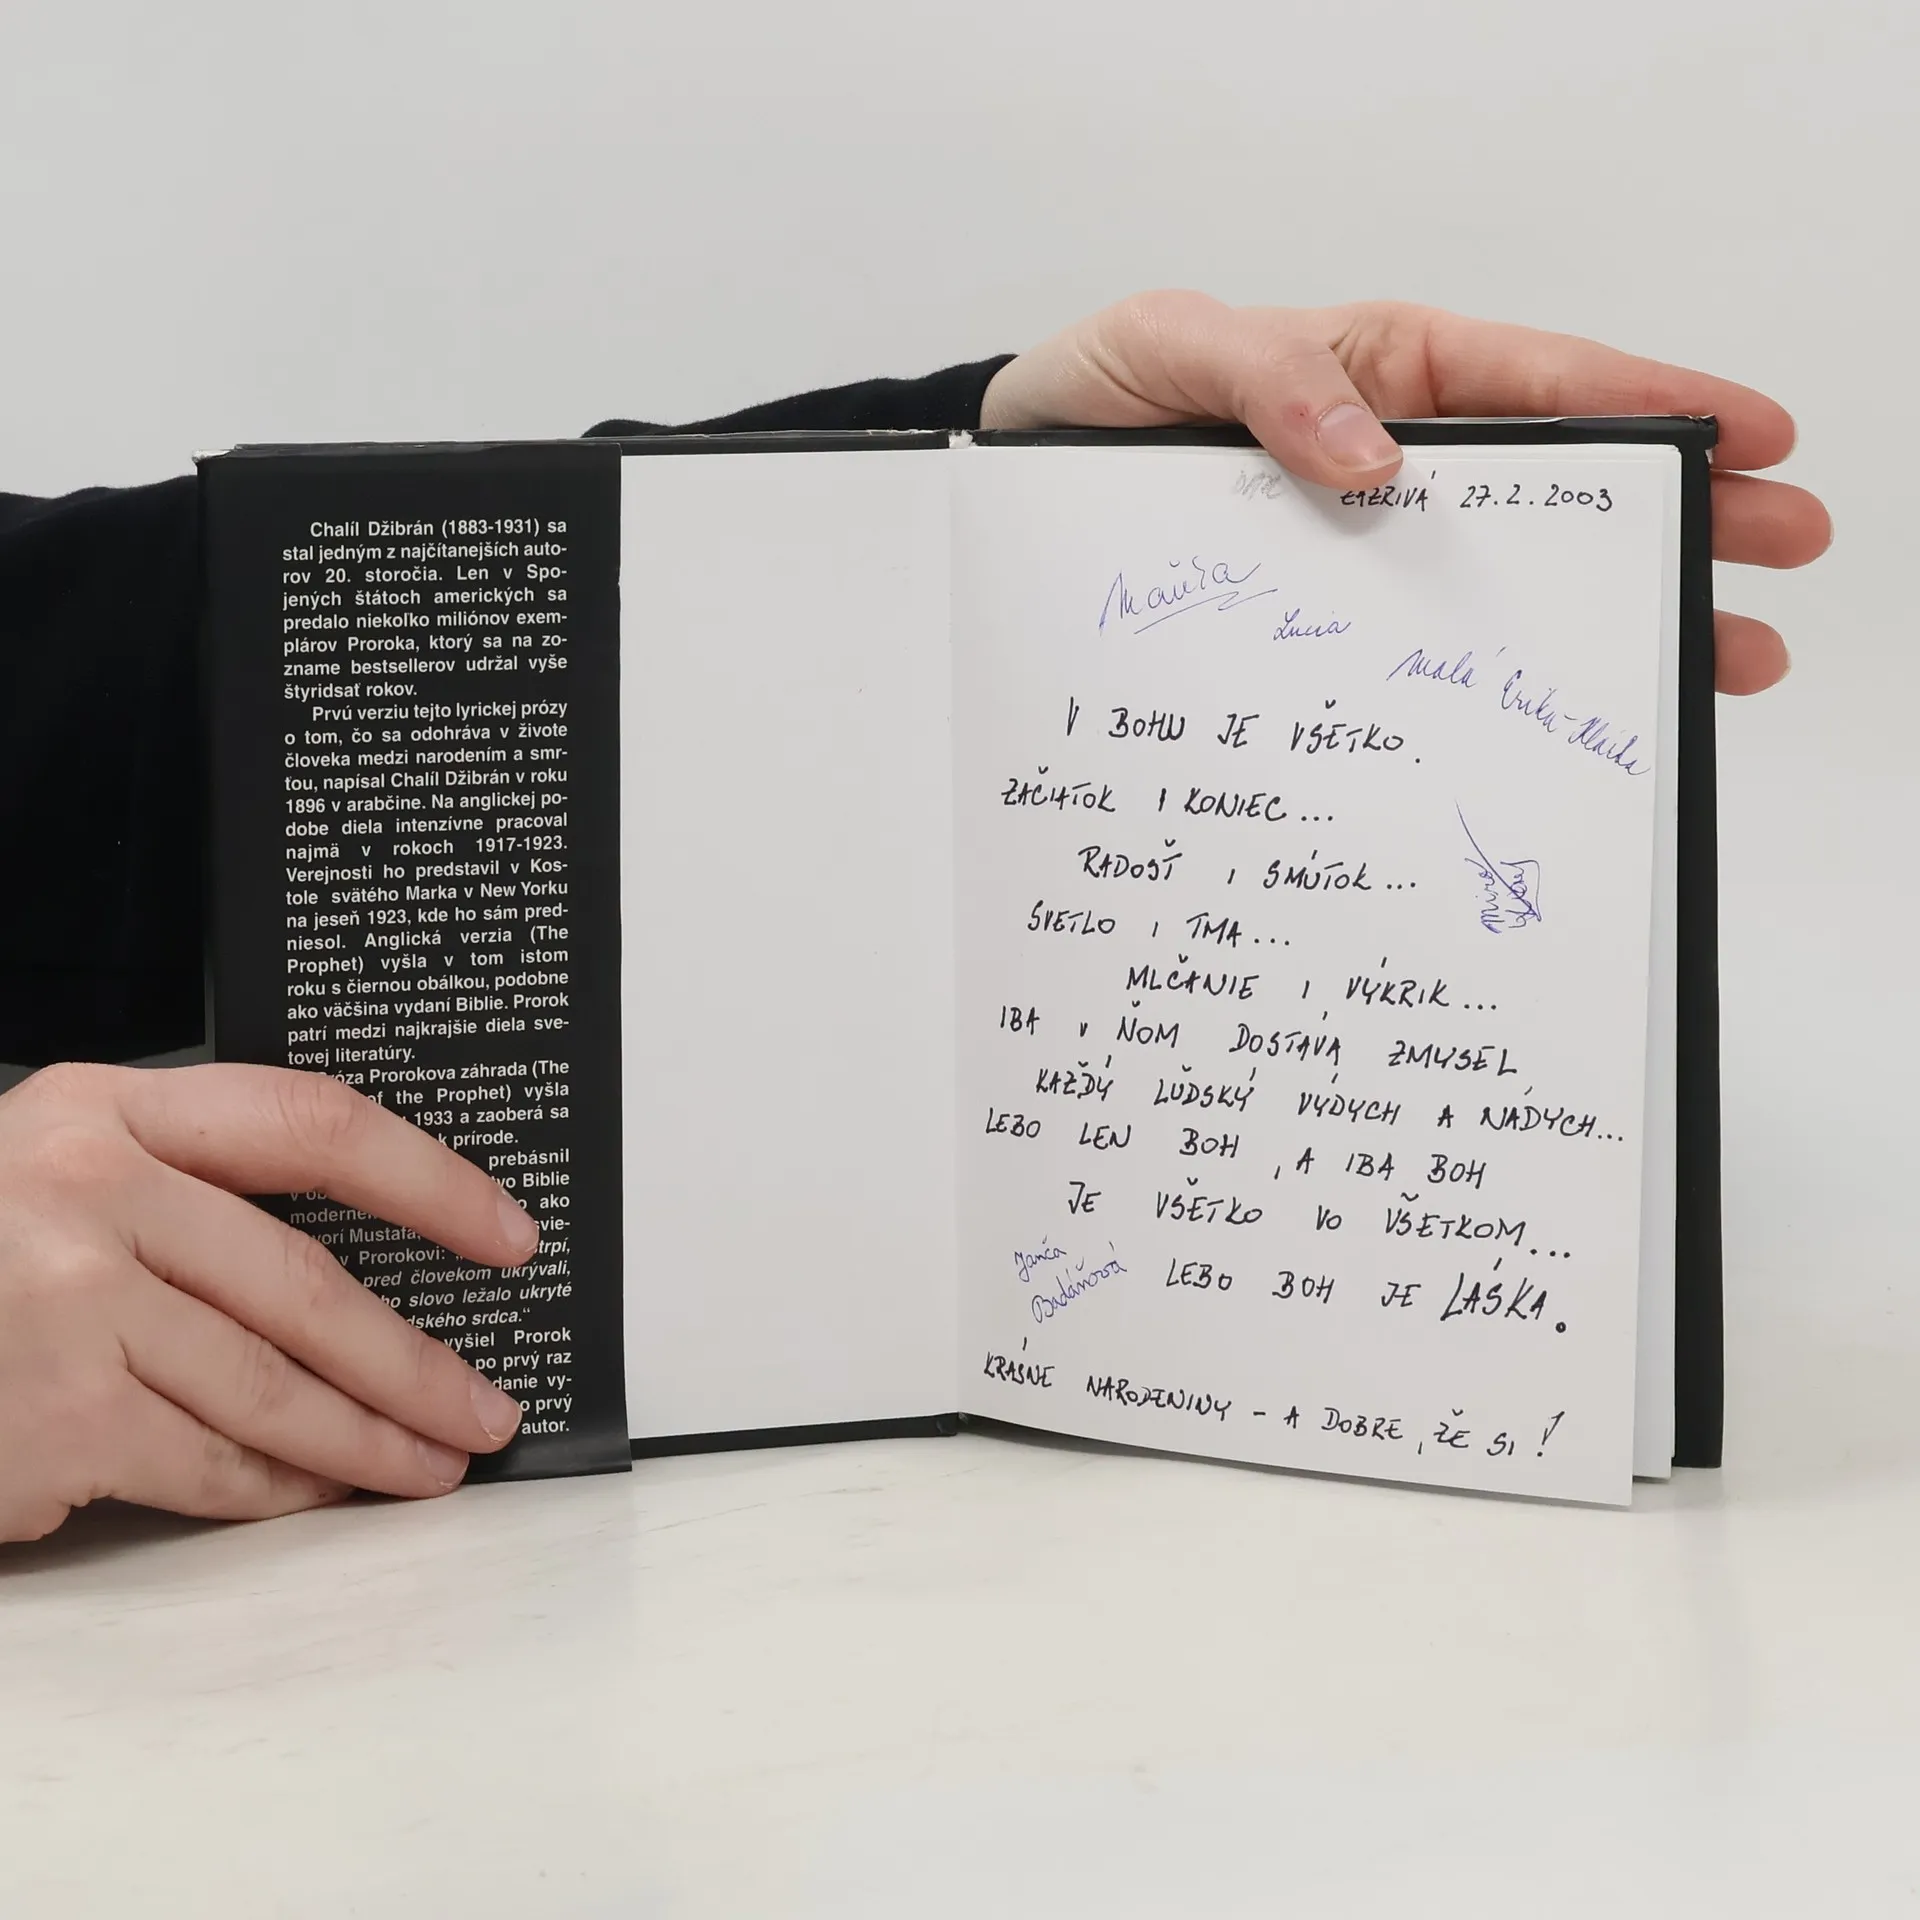 Chalíl Džibrán (1883-1931) sa
stal jedným z najčítanejších auto-
rov 20. storočia. Len v Spo-
jených štátoch amerických sa
predalo niekoľko miliónov exem-
plárov Proroka, ktorý sa na zo-
zname bestsellerov udržal vyše
štyridsať rokov.
Prvú verziu tejto lyrickej prózy
o tom, čo sa odohráva v živote
človeka medzi narodením a smr-
ťou, napísal Chalíl Džibrán v roku
1896 v arabčine. Na anglickej po-
dobe diela intenzívne pracoval
najmä v rokoch 1917-1923.
Verejnosti ho predstavil v Kos-
tole svätého Marka v New Yorku
na jeseň 1923, kde ho sám pred-
niesol. Anglická verzia (The
Prophet) vyšla v tom istom
roku s čiernou obálkou, podobne
ako väčšina vydaní Biblie. Prorok
patrí medzi najkrajšie diela sve-
tovej literatúry.
Prorokova záhrada (The
of the Prophet) vyšla
1933 a zaoberá sa
k prírode.
prebásnil
Biblie
ako
Mustafa,
v Prorokovi:
pred človekom ukrývali,
slovo ležalo ukryté
srdca.“
vyšiel Prorok
po prvý raz
vy-
prvý
autor.
ZÁZRIVÁ 27.2.2003
Lucia
malá Erika
V BOHU JE VŠETKO.
ZAČIATOK I KONIEC...
RADOSŤ I SMÚTOK...
SVETLO I TMA...
MLČANIE I VÝKRIK...
IBA V ŇOM DOSTÁVA ZMYSEL
KAŽDÝ ĽUDSKÝ VÝDYCH A NÁDYCH...
LEBO LEN BOH, A IBA BOH
JE VŠETKO VO VŠETKOM...
LEBO BOH JE LÁSKA.
Miro
Janča
Badáňová
KRÁSNE NARODENINY - A DOBRE, ŽE SI!